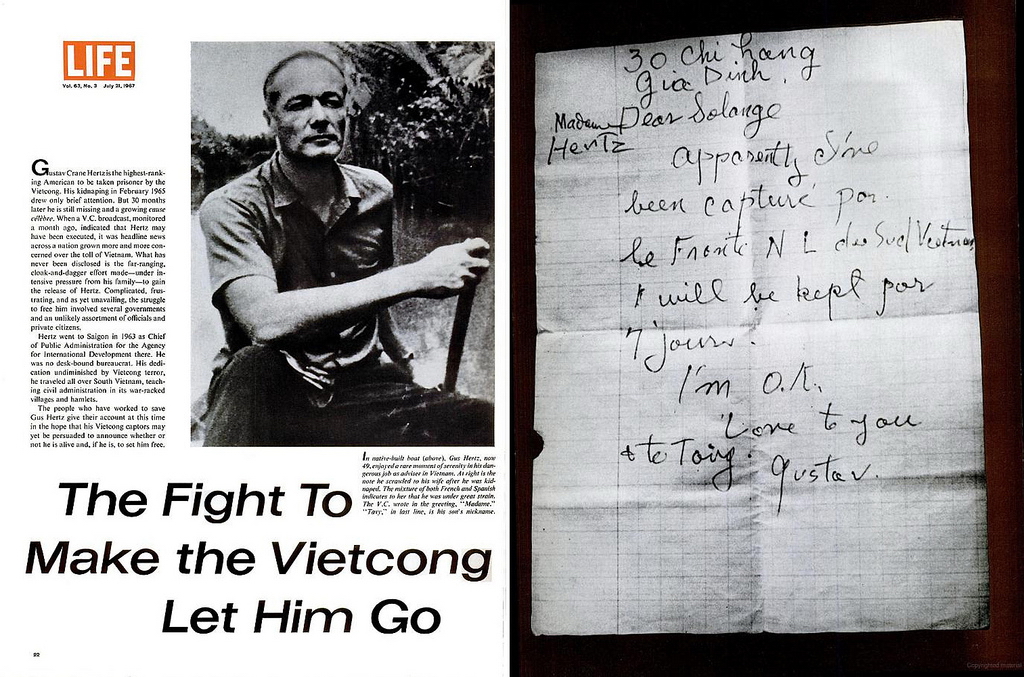 LIFE
Vol. 63, No. 3 July 21, 1967
Gustav Crane Hertz is the highest-rank-
ing American to be taken prisoner by the
Vietcong. His kidnaping in February 1965
drew only brief attention. But 30 months
later he is still missing and a growing cause
célèbre. When a V.C. broadcast, monitored
a month ago, indicated that Hertz may
have been executed, it was headline news
across a nation grown more and more con-
cerned over the toll of Vietnam. What has
never been disclosed is the far-ranging,
cloak-and-dagger effort made—under in-
tensive pressure from his family—to gain
the release of Hertz. Complicated, frus-
trating, and as yet unavailing, the struggle
to free him involved several governments
and an unlikely assortment of officials and
private citizens.
Hertz went to Saigon in 1963 as Chief
of Public Administration for the Agency
for International Development there. He
was no desk-bound bureaucrat. His dedi-
cation undiminished by Vietcong terror,
he traveled all over South Vietnam, teach-
ing civil administration in its war-racked
villages and hamlets.
The people who have worked to save
Gus Hertz give their account at this time
in the hope that his Vietcong captors may
yet be persuaded to announce whether or
not he is alive and, if he is, to set him free.
In native-built boat (above), Gus Hertz, now
49, enjoyed a rare moment of serenity in his dan-
gerous job as adviser in Vietnam. At right is the
note he scrawled to his wife after he was kid-
naped. The mixture of both French and Spanish
indicates to her that he was under great strain.
The V.C. wrote in the greeting, "Madame."
"Tavy," in last line, is his son's nickname.
The Fight To
Make the Vietcong
Let Him Go
22
30 Chi Lang
Gia Dinh.
Madame Dear Solange
Hertz
Apparently I've
been capturé por
le Fronte N L du Sud/Vietnam
I will be kept por
7 jours.
I'm O.K.
Love to you
& to Tavy.
Gustav.
Copyrighted material